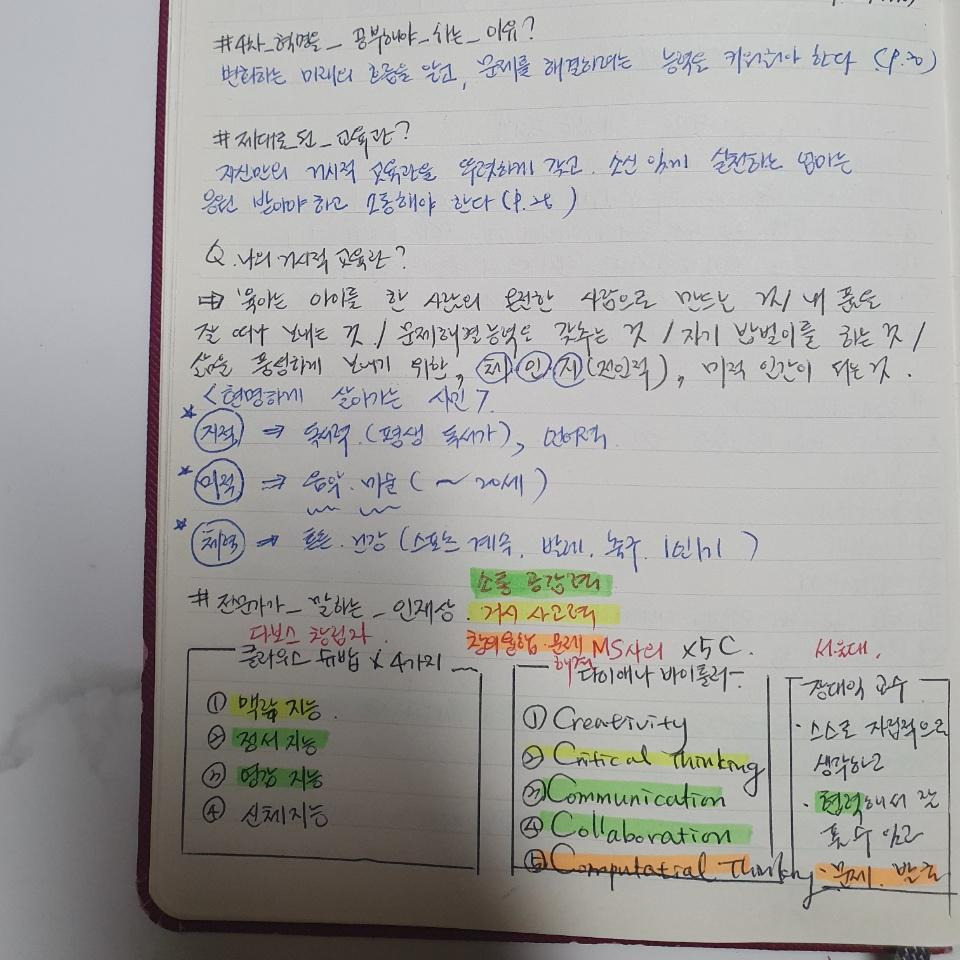 #4차_혁명을_공부해야_하는_이유?
변화하는 미래의 흐름을 알고, 문제를 해결하려는 능력을 키워줘야 한다 (P.30)
#제대로_된_교육관?
자신만의 거시적 교육관을 뚜렷하게 갖고, 소신 있게 실천하는 엄마는
응원 받아야 하고 소통해야 한다 (P.28)
Q. 나의 거시적 교육관?
⇒ 육아는 아이를 한 사람의 온전한 사람으로 만드는 것/ 내 품을
잘 떠나 보내는 것 / 문제해결능력을 갖추는 것 / 자기 밥벌이를 하는 것 /
삶을 풍성하게 보내기 위한, 체·인·지 (전인적), 미적 인간이 되는 것.
<현명하게 살아가는 시민>
*지적 ⇒ 독서력. (평생 독서가), 언어적
*미적 ⇒ 음악. 미술 ( ~ 20세)
*체력 ⇒ 튼튼. 건강 (스포츠 계속, 발레, 축구, 1인1기)
소통 공감력
#전문가가_말하는_인재상. 거시 사고력
다보스 창립자. 창의융합·문제해결 MS사의 x5C. 서울대.
클라우스 슈밥 x 4가지
① 맥락 지능.
② 정서 지능
③ 영감 지능
④ 신체지능
다이애나 바이틀러
① Creativity
② Critical Thinking
③ Communication
④ Collaboration
⑤ Computatial Thinking
장대익 교수
· 스스로 자립적으로
생각하고
· 협력해서 잘
·문제. 발굴